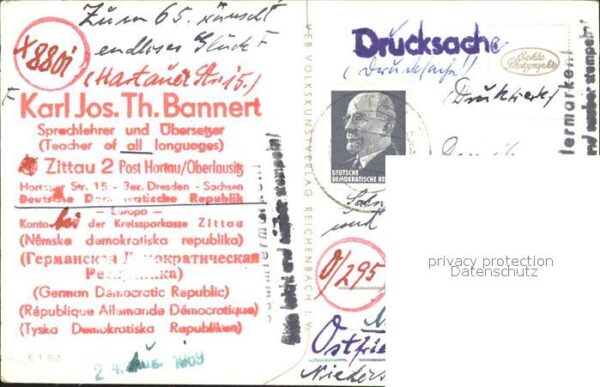 Zum 65. wünscht
endloses Glück
X8801
(Hartauer Str. 15.)
Karl Jos. Th. Bannert
Sprachlehrer und Übersetzer
(Teacher of all languages)
Zittau 2 Post Hartau/Oberlausitz
Hartauer Str. 15 - Bez. Dresden - Sachsen
Deutsche Demokratische Republik
— Europa —
Konto bei der Kreissparkasse Zittau
(Německa demokratiska republika)
(Германская Демократическая
Республика)
(German Democratic Republic)
(République Allemande Démocratique)
(Tyska Demokratiska Republiken)
K 1 362
24. Aug. 1969
VEB VOLKSKUNSTVERLAG REICHENBACH I. V.
Sammlermarken!
Bitte leicht und sauber stempeln!
Drucksache
(Drucksache!!)
(Druckwerk)
Echte
Photographie
DEUTSCHE
DEMOKRATISCHE RE
und
0/295
Ostfrie
Nieders
privacy protection
Datenschutz
termarken!
sauber stempeln!